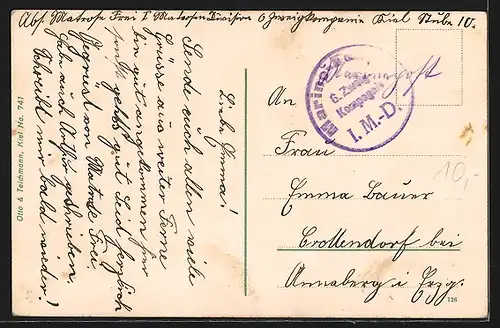 Abs. Matrose Frei I Matrosen Division 6 Zweigkompanie Kiel Stube 10.
Liebe Emma!
Sende euch allen viele
Grüsse aus weiter Ferne
bin gut angekommen hier
geht gut Seid herzlich
gegrüsst von Matrose Frei
habe auch Arthur geschrieben.
Schreibt mir bald wieder!
Otto & Teichmann, Kiel No. 741
Marinepost
Marine
6. Zweig
Kompagnie
I. M.-D.
An
Frau
Emma Bauer
Crottendorf bei
Annaberg i Erzg.
10,-
126